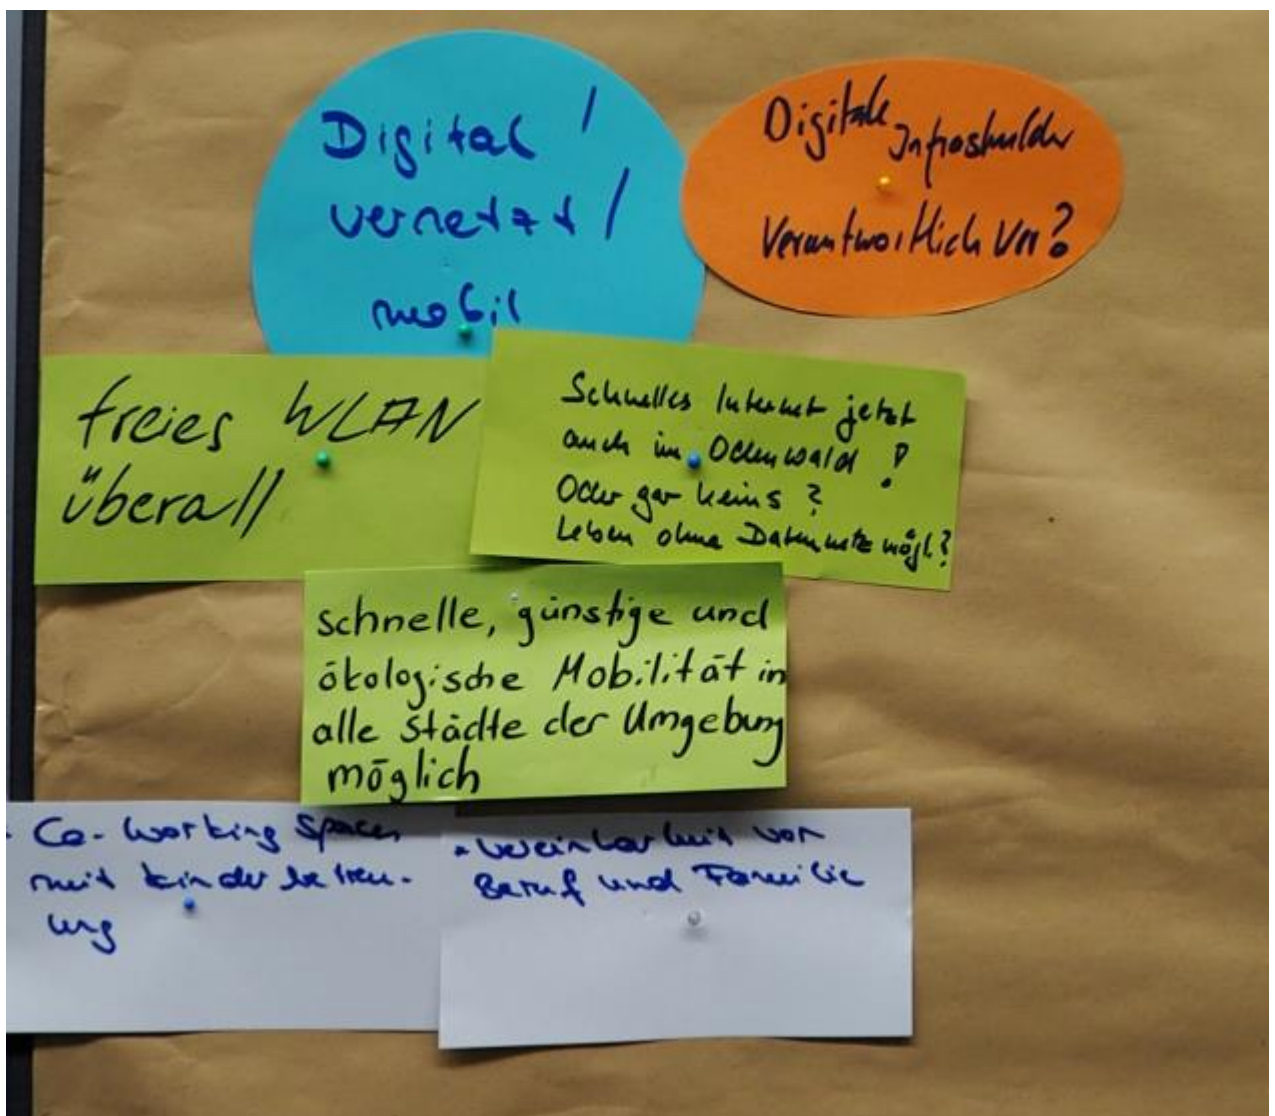 Digital /
vernetzt /
mobil
Digitale Infrastruktur
Verantwortlich
freies WLAN
überall
Schnelles Internet jetzt
auch im Odenwald !
Oder gar keins ?
Leben ohne Datennetz mögl.?
schnelle, günstige und
ökologische Mobilität in
alle Städte der Umgebung
möglich
- Co-working Spaces
mit kinderbetreu-
ung
- Vereinbarkeit von
Beruf und Familie